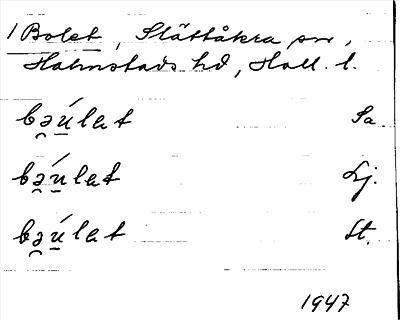 1 Bolet, Slättåkra sn,
Halmstads hd, Hall. l.
bə̯ú̲lət Sa
bə̯ú̲lət Lj.
bə̯ú̲lət St.
1947